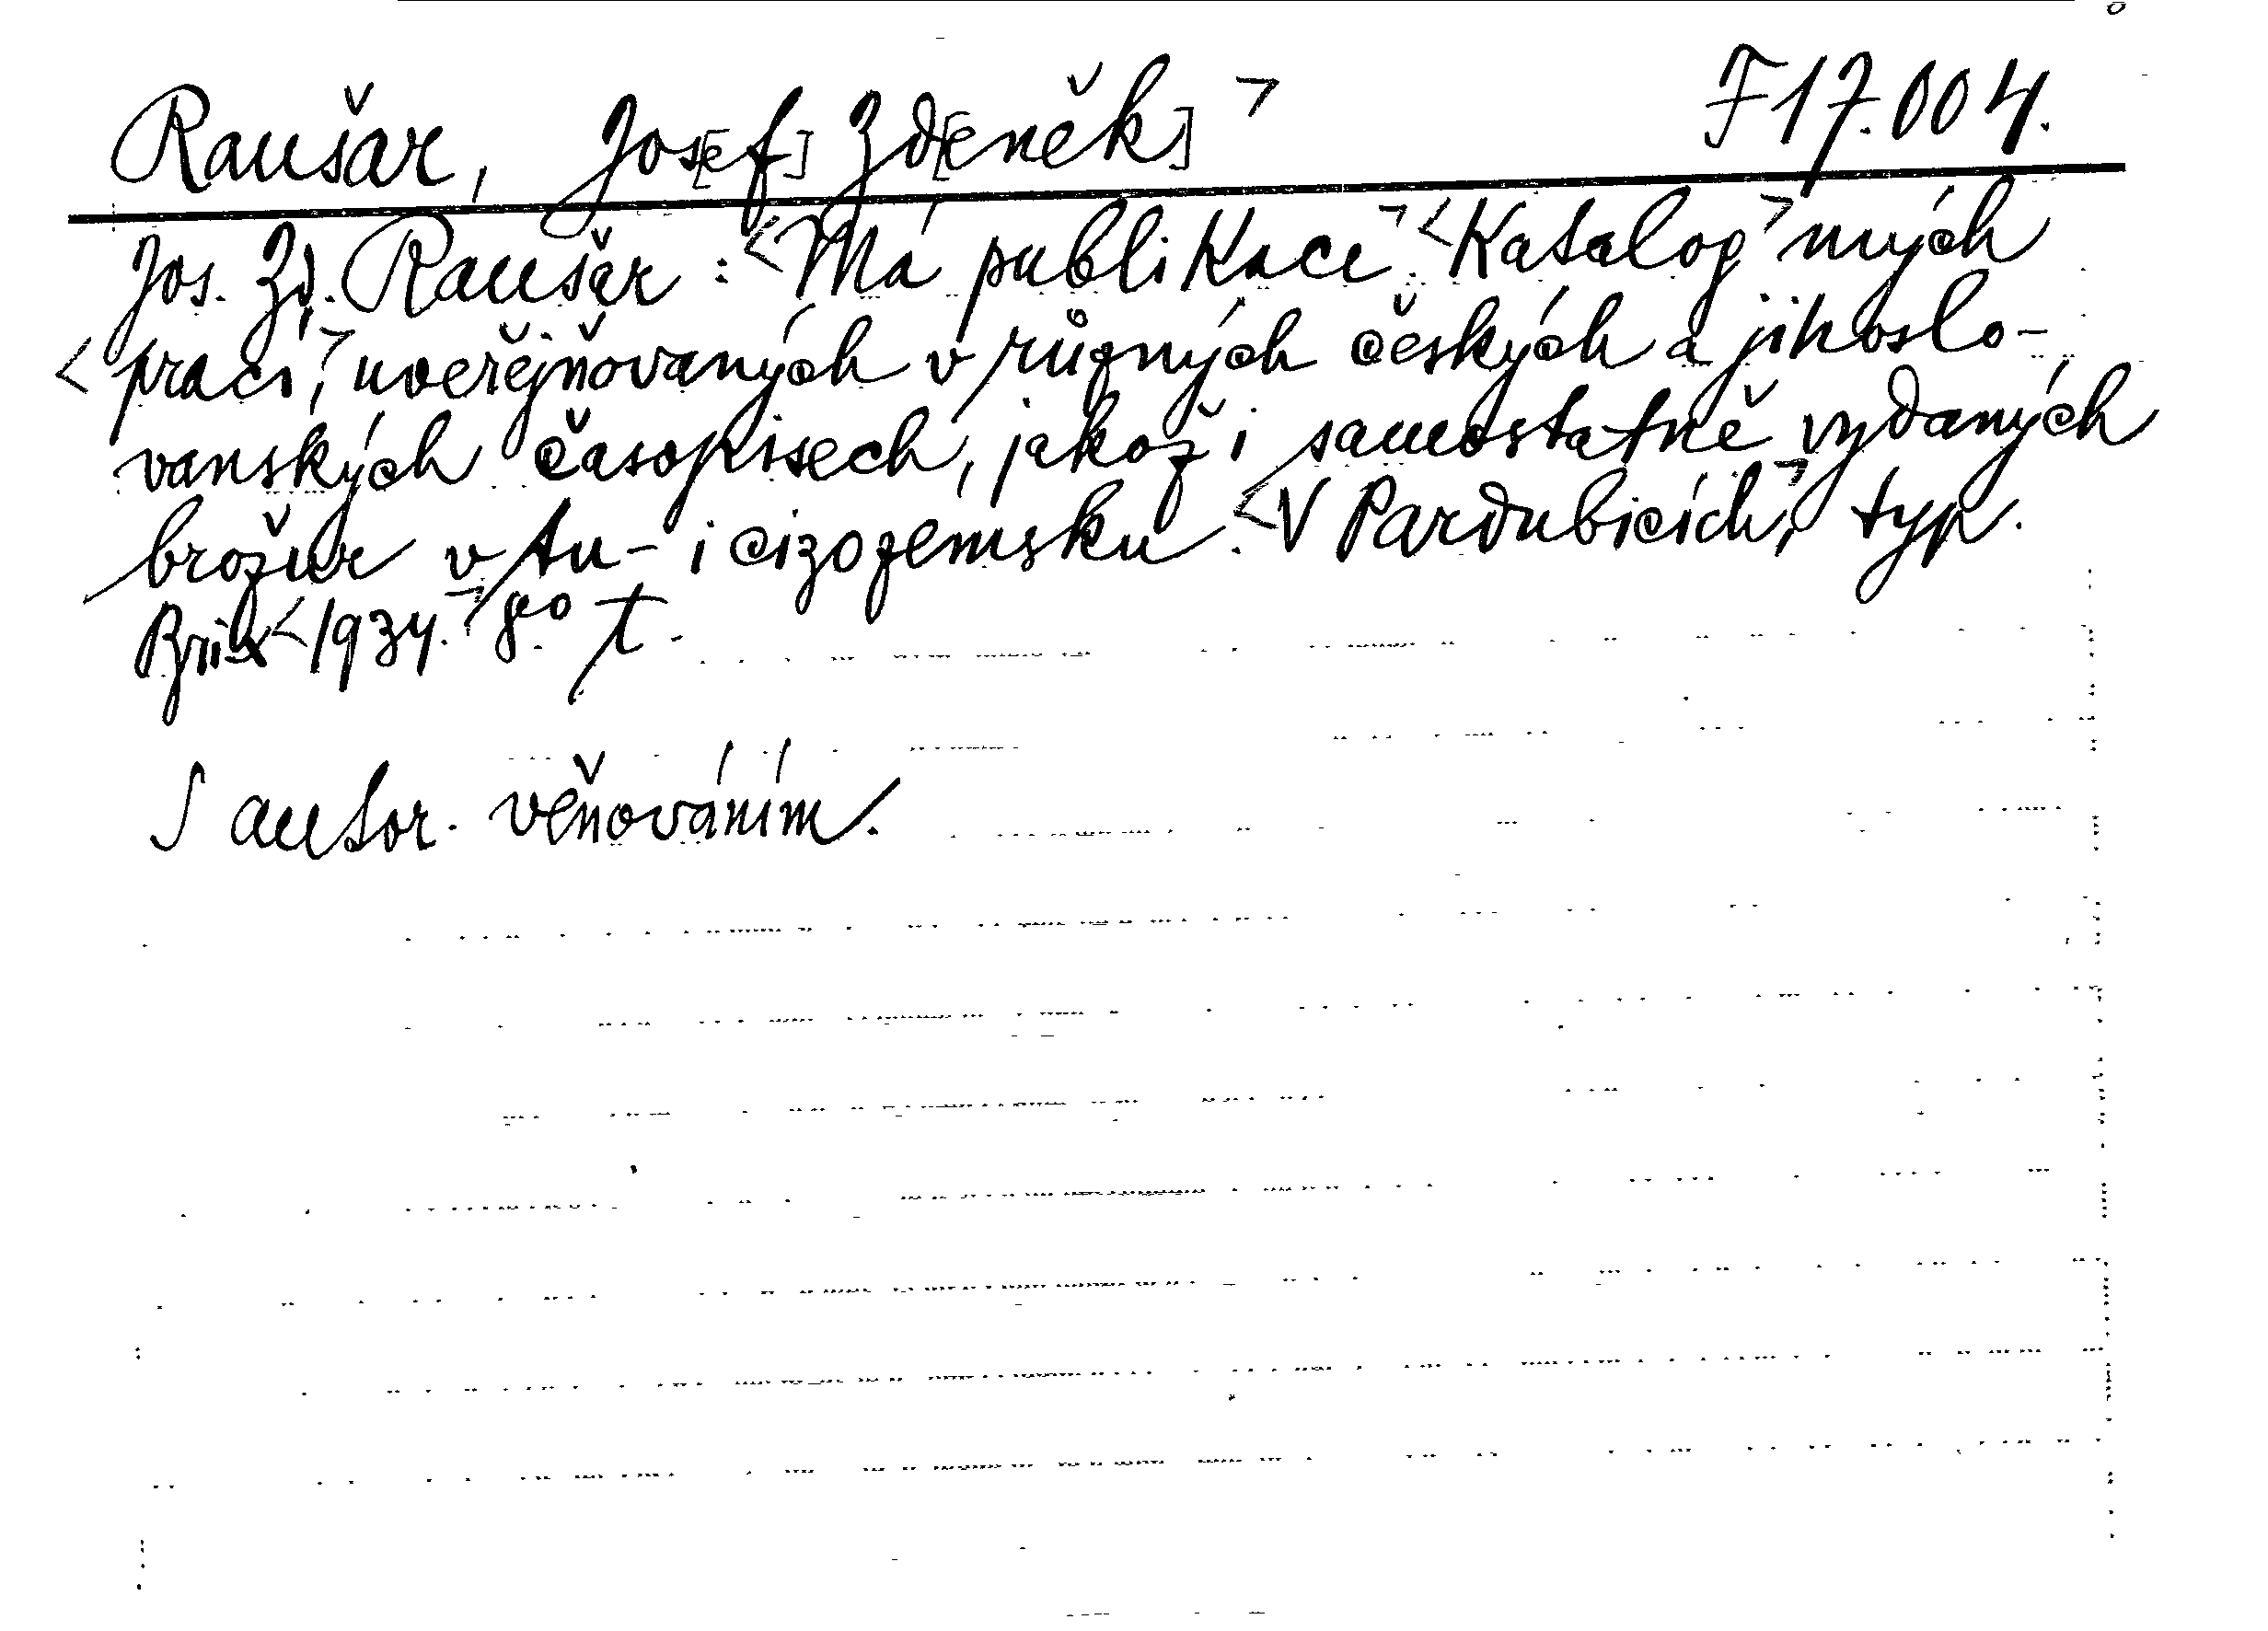 Raušar, Jos[ef] Zd[eněk] ¬ F 17.004.
Jos. Zd. Raušar: <Má publikace¬. <Katalog¬ mých
<prací,¬ uveřejňovaných v různých českých a jihoslo-
vanských časopisech, jakož i samostatně vydaných
brožur v tu- i cizozemsku. <V Pardubicích,¬ typ.
Brix <1934.¬ 8° t.
S autor. věňováním.